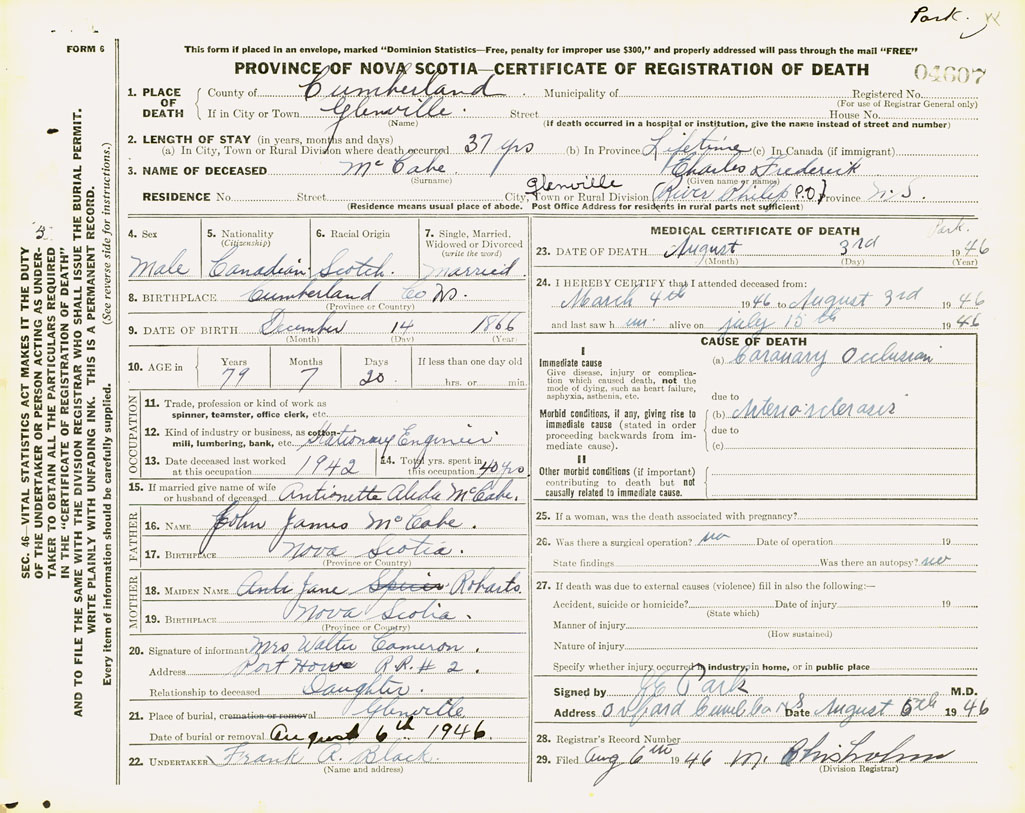 Park.
FORM 6
This form if placed in an envelope, marked "Dominion Statistics—Free, penalty for improper use $300," and properly addressed will pass through the mail "FREE"
PROVINCE OF NOVA SCOTIA—CERTIFICATE OF REGISTRATION OF DEATH
04607
1. PLACE OF DEATH { County of Cumberland Municipality of Registered No.
(For use of Registrar General only)
If in City or Town Glenville Street House No.
(Name) (If death occurred in a hospital or institution, give the name instead of street and number)
2. LENGTH OF STAY (in years, months and days)
(a) In City, Town or Rural Division where death occurred 37 yrs (b) In Province Lifetime (c) In Canada (if immigrant)
3. NAME OF DECEASED McCabe Charles Frederick
(Surname) (Given name or names)
RESIDENCE No. Street Glenville City, Town or Rural Division (River Philip P.O.) Province N.S
(Residence means usual place of abode. Post Office Address for residents in rural parts not sufficient)
4. Sex Male
5. Nationality (Citizenship) Canadian
6. Racial Origin Scotch.
7. Single, Married, Widowed or Divorced (write the word) Married
8. BIRTHPLACE Cumberland Co NS.
(Province or Country)
9. DATE OF BIRTH December 14 1866
(Month) (Day) (Year)
10. AGE in Years 79 Months 7 Days 20 If less than one day old hrs. or min.
OCCUPATION
11. Trade, profession or kind of work as spinner, teamster, office clerk, etc.
12. Kind of industry or business, as cotton-mill, lumbering, bank, etc. Stationary Engineer
13. Date deceased last worked at this occupation 1942 14. Total yrs. spent in this occupation 40 yrs
15. If married give name of wife or husband of deceased Antionette Aleda McCabe.
FATHER
16. NAME John James McCabe.
17. BIRTHPLACE Nova Scotia.
(Province or Country)
MOTHER
18. MAIDEN NAME Jane Roberts
19. BIRTHPLACE Nova Scotia.
(Province or Country)
20. Signature of informant Mrs Walter Cameron.
Address Port Howe R.R. # 2.
Relationship to deceased Daughter.
21. Place of burial, cremation or removal Glenville
Date of burial or removal August 6th 1946.
22. UNDERTAKER Frank A. Black.
(Name and address)
MEDICAL CERTIFICATE OF DEATH
Park.
23. DATE OF DEATH August 3rd 1946
(Month) (Day) (Year)
24. I HEREBY CERTIFY that I attended deceased from:
March 4th 1946 to August 3rd 1946
and last saw h im alive on july 15th 1946
CAUSE OF DEATH
I
Immediate cause
Give disease, injury or complication which caused death, not the mode of dying, such as heart failure, asphyxia, asthenia, etc.
(a) Coronary Occlusion
due to
Morbid conditions, if any, giving rise to immediate cause (stated in order proceeding backwards from immediate cause).
(b) Arteriosclerosis
due to
(c)
II
Other morbid conditions (if important) contributing to death but not causally related to immediate cause.
25. If a woman, was the death associated with pregnancy?
26. Was there a surgical operation? no Date of operation 19
State findings Was there an autopsy? no
27. If death was due to external causes (violence) fill in also the following:—
Accident, suicide or homicide? Date of injury 19
(State which)
Manner of injury
(How sustained)
Nature of injury
Specify whether injury occurred in industry, in home, or in public place
Signed by Park M.D.
Address Oxford Cumb Co NS Date August 5th 1946
28. Registrar's Record Number
29. Filed Aug 6th 1946 M. Chisholm
(Division Registrar)
SEC. 46—VITAL STATISTICS ACT MAKES IT THE DUTY
OF THE UNDERTAKER OR PERSON ACTING AS UNDER-
TAKER TO OBTAIN ALL THE PARTICULARS REQUIRED
IN THE "CERTIFICATE OF REGISTRATION OF DEATH"
AND TO FILE THE SAME WITH THE DIVISION REGISTRAR WHO SHALL ISSUE THE BURIAL PERMIT.
WRITE PLAINLY WITH UNFADING INK. THIS IS A PERMANENT RECORD.
Every item of information should be carefully supplied. (See reverse side for instructions.)